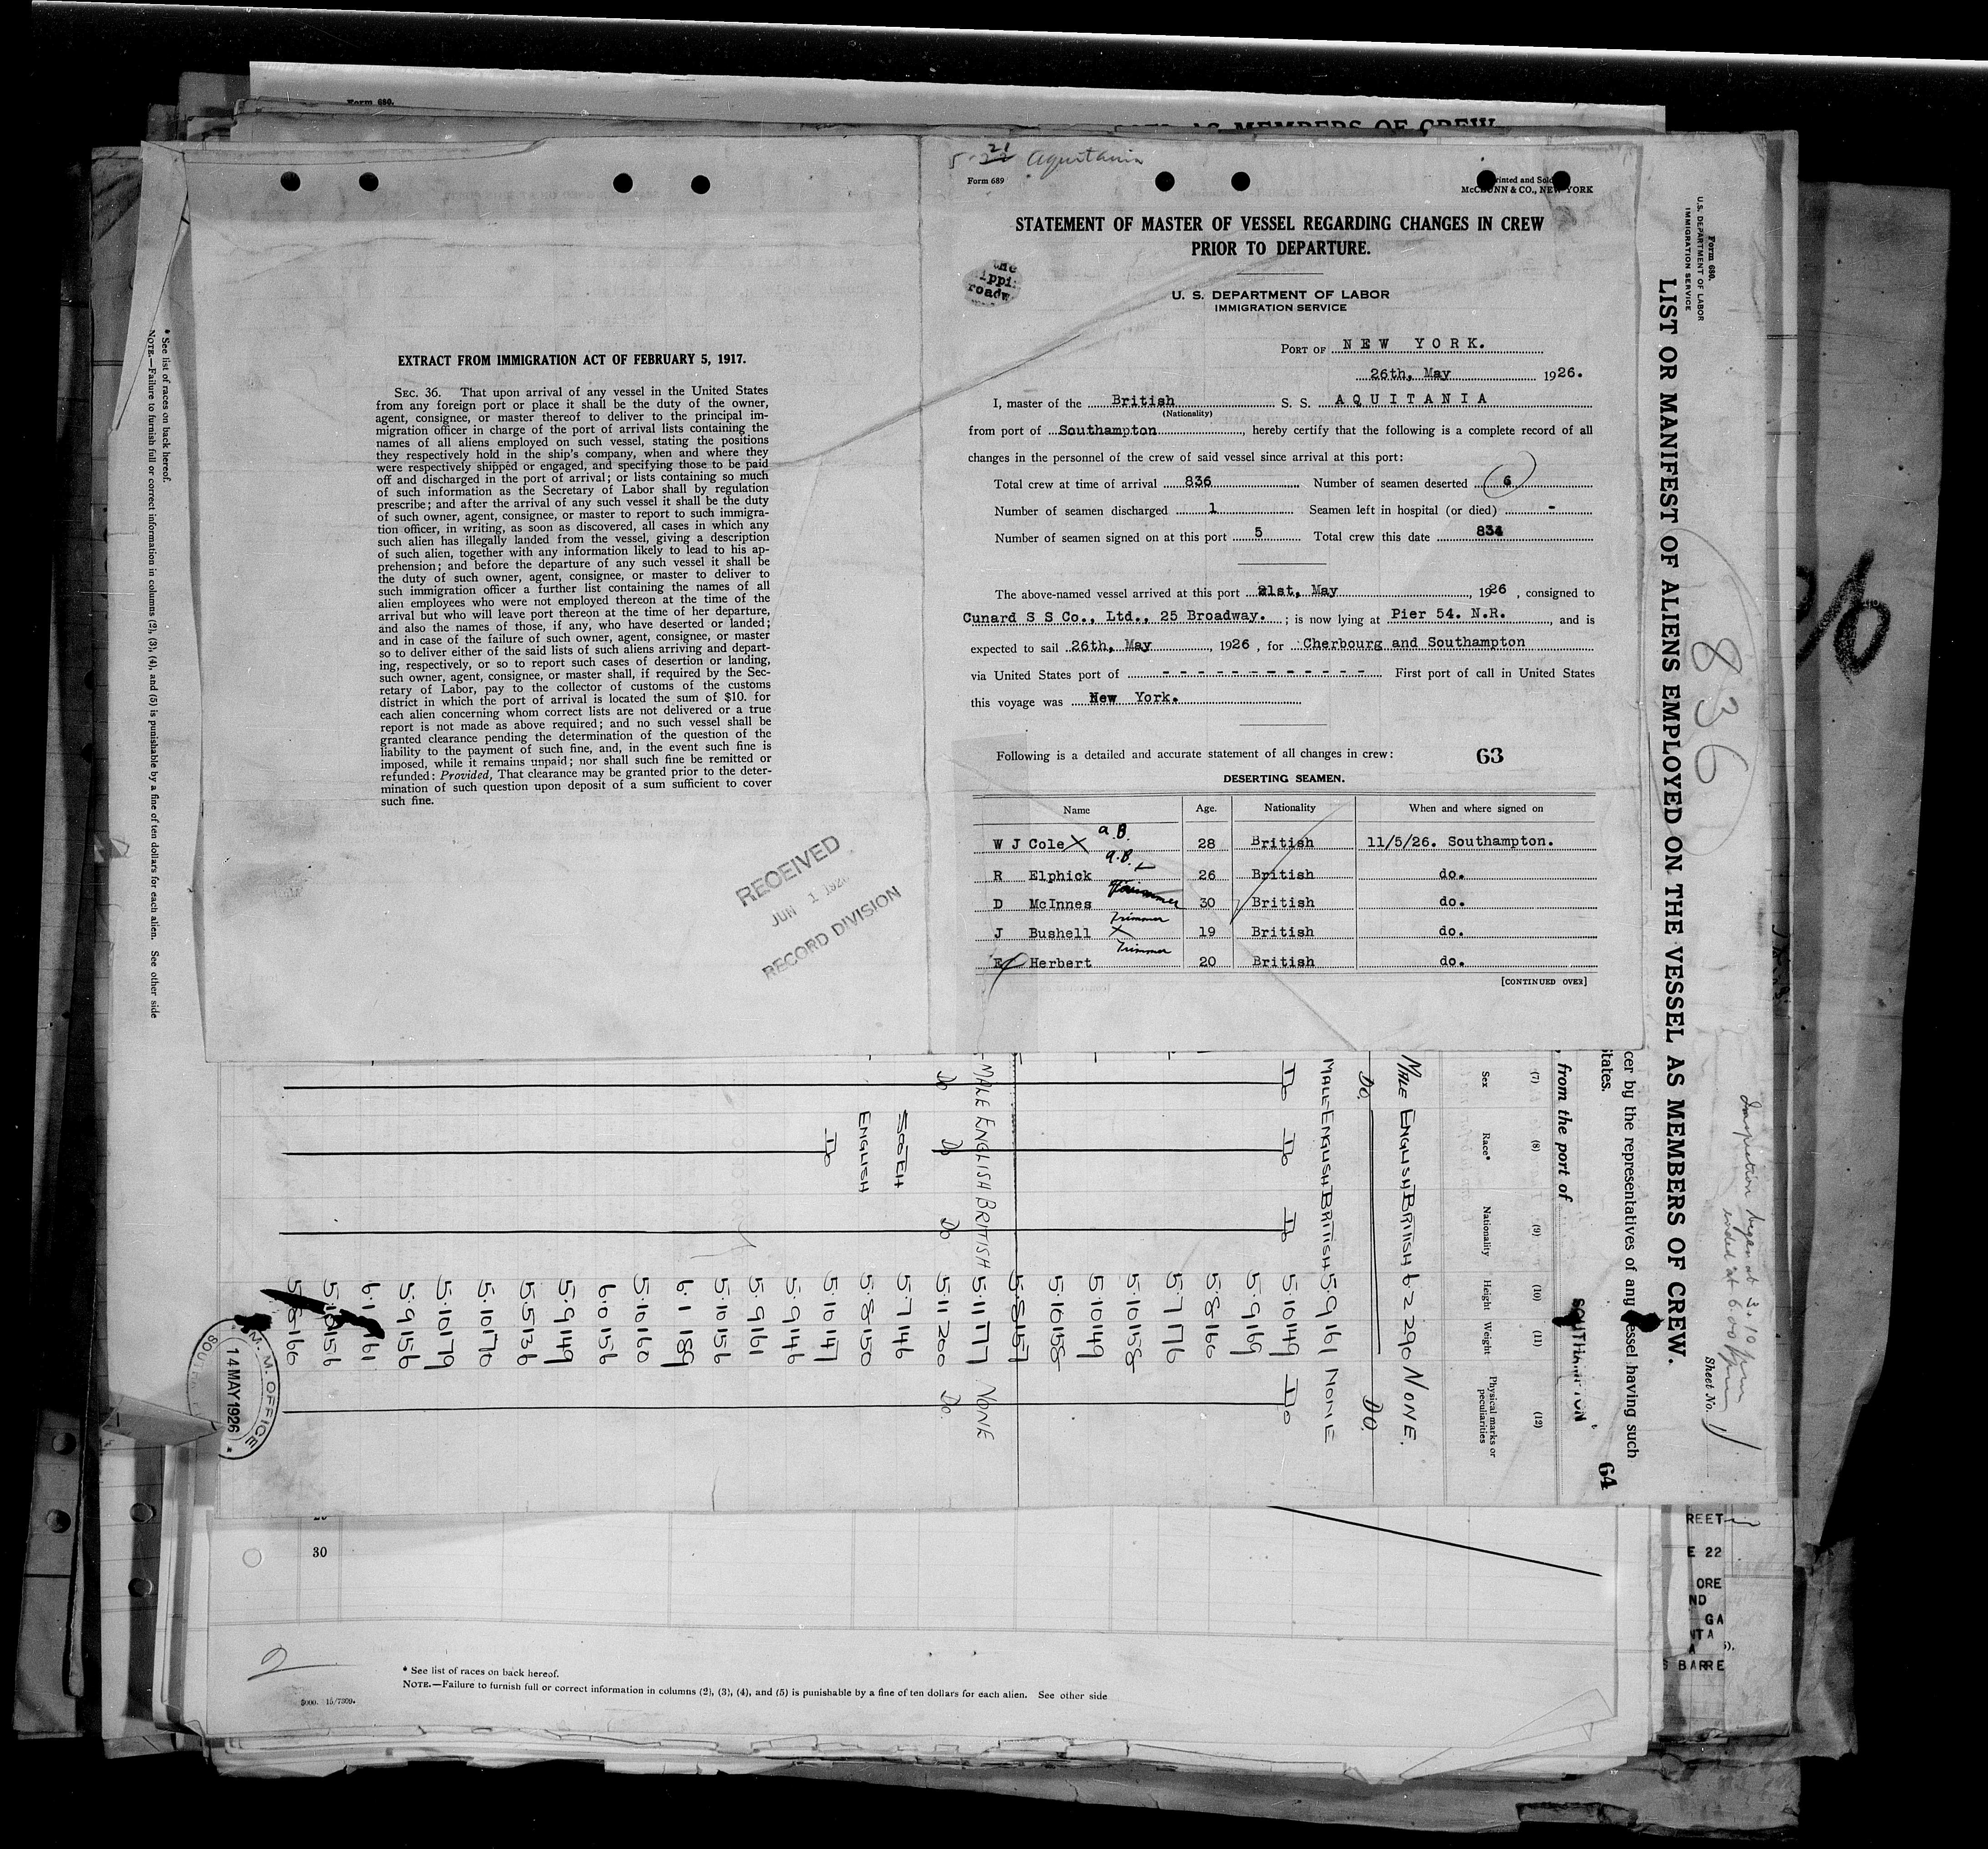 Form 680.
AS MEMBERS OF CREW
5-21 Aquitania
Form 689
Printed and Sold
McCUNN & CO., NEW YORK
STATEMENT OF MASTER OF VESSEL REGARDING CHANGES IN CREW
PRIOR TO DEPARTURE.
U. S. DEPARTMENT OF LABOR
IMMIGRATION SERVICE
PORT OF NEW YORK.
26th, May 1926.
I, master of the British S. S. AQUITANIA
(Nationality)
from port of Southampton, hereby certify that the following is a complete record of all
changes in the personnel of the crew of said vessel since arrival at this port:
Total crew at time of arrival 836 Number of seamen deserted 6
Number of seamen discharged 1 Seamen left in hospital (or died) -
Number of seamen signed on at this port 5 Total crew this date 834
The above-named vessel arrived at this port 21st, May, 1926, consigned to
Cunard S S Co., Ltd., 25 Broadway.; is now lying at Pier 54. N.R., and is
expected to sail 26th, May, 1926, for Cherbourg and Southampton
via United States port of - - - - - - - - - - - - First port of call in United States
this voyage was New York.
Following is a detailed and accurate statement of all changes in crew: 63
DESERTING SEAMEN.
Name Age. Nationality When and where signed on
W J Cole X a.B. 28 British 11/5/26. Southampton.
R Elphick a.B. 26 British do.
D McInnes Trimmer 30 British do.
J Bushell Trimmer X 19 British do.
E Herbert Trimmer 20 British do.
[CONTINUED OVER]
EXTRACT FROM IMMIGRATION ACT OF FEBRUARY 5, 1917.
SEC. 36. That upon arrival of any vessel in the United States
from any foreign port or place it shall be the duty of the owner,
agent, consignee, or master thereof to deliver to the principal im-
migration officer in charge of the port of arrival lists containing the
names of all aliens employed on such vessel, stating the positions
they respectively hold in the ship's company, when and where they
were respectively shipped or engaged, and specifying those to be paid
off and discharged in the port of arrival; or lists containing so much
of such information as the Secretary of Labor shall by regulation
prescribe; and after the arrival of any such vessel it shall be the duty
of such owner, agent, consignee, or master to report to such immigra-
tion officer, in writing, as soon as discovered, all cases in which any
such alien has illegally landed from the vessel, giving a description
of such alien, together with any information likely to lead to his ap-
prehension; and before the departure of any such vessel it shall be
the duty of such owner, agent, consignee, or master to deliver to
such immigration officer a further list containing the names of all
alien employees who were not employed thereon at the time of the
arrival but who will leave port thereon at the time of her departure,
and also the names of those, if any, who have deserted or landed;
and in case of the failure of such owner, agent, consignee, or master
so to deliver either of the said lists of such aliens arriving and depart-
ing, respectively, or so to report such cases of desertion or landing,
such owner, agent, consignee, or master shall, if required by the Sec-
retary of Labor, pay to the collector of customs of the customs
district in which the port of arrival is located the sum of $10. for
each alien concerning whom correct lists are not delivered or a true
report is not made as above required; and no such vessel shall be
granted clearance pending the determination of the question of the
liability to the payment of such fine, and, in the event such fine is
imposed, while it remains unpaid; nor shall such fine be remitted or
refunded: Provided, That clearance may be granted prior to the deter-
mination of such question upon deposit of a sum sufficient to cover
such fine.
RECEIVED
JUN 1 1926
RECORD DIVISION
* See list of races on back hereof.
NOTE.—Failure to furnish full or correct information in columns (2), (3), (4), and (5) is punishable by a fine of ten dollars for each alien. See other side
Form 680.
U.S. DEPARTMENT OF LABOR
IMMIGRATION SERVICE
LIST OR MANIFEST OF ALIENS EMPLOYED ON THE VESSEL AS MEMBERS OF CREW.
836
Inspection began at 3.10 pm
ended at 6.00 pm
Sheet No. 1
cer by the representatives of any vessel having such
tates.
, from the port of SOUTHAMPTON
64
(7) (8) (9) (10) (11) (12)
Sex Race* Nationality Height Weight Physical marks or peculiarities
MALE ENGLISH BRITISH 6.2 290 NONE.
DO. DO.
MALE ENGLISH BRITISH 5.9 161 NONE
Do Do Do 5.10 149 Do
5.9 169
5.8 160
5.7 176
5.10 158
5.10 149
5.10 158
5.8 157
MALE ENGLISH BRITISH 5.11 177 NONE
Do Do Do 5.11 200 Do.
SCOTCH 5.7 146
ENGLISH 5.8 150
Do 5.10 147
5.9 146
5.9 161
5.10 156
6.1 189
5.10 160
6.0 156
5.9 149
5.5 136
5.10 170
5.10 179
5.9 156
6.1 161
5.10 156
5.5 160
M. M. OFFICE
14 MAY 1926
30
2
* See list of races on back hereof.
NOTE.—Failure to furnish full or correct information in columns (2), (3), (4), and (5) is punishable by a fine of ten dollars for each alien. See other side
5000. 15/7309.
REET
E 22
ORE
ND
GA
NTA
A
S BARRE